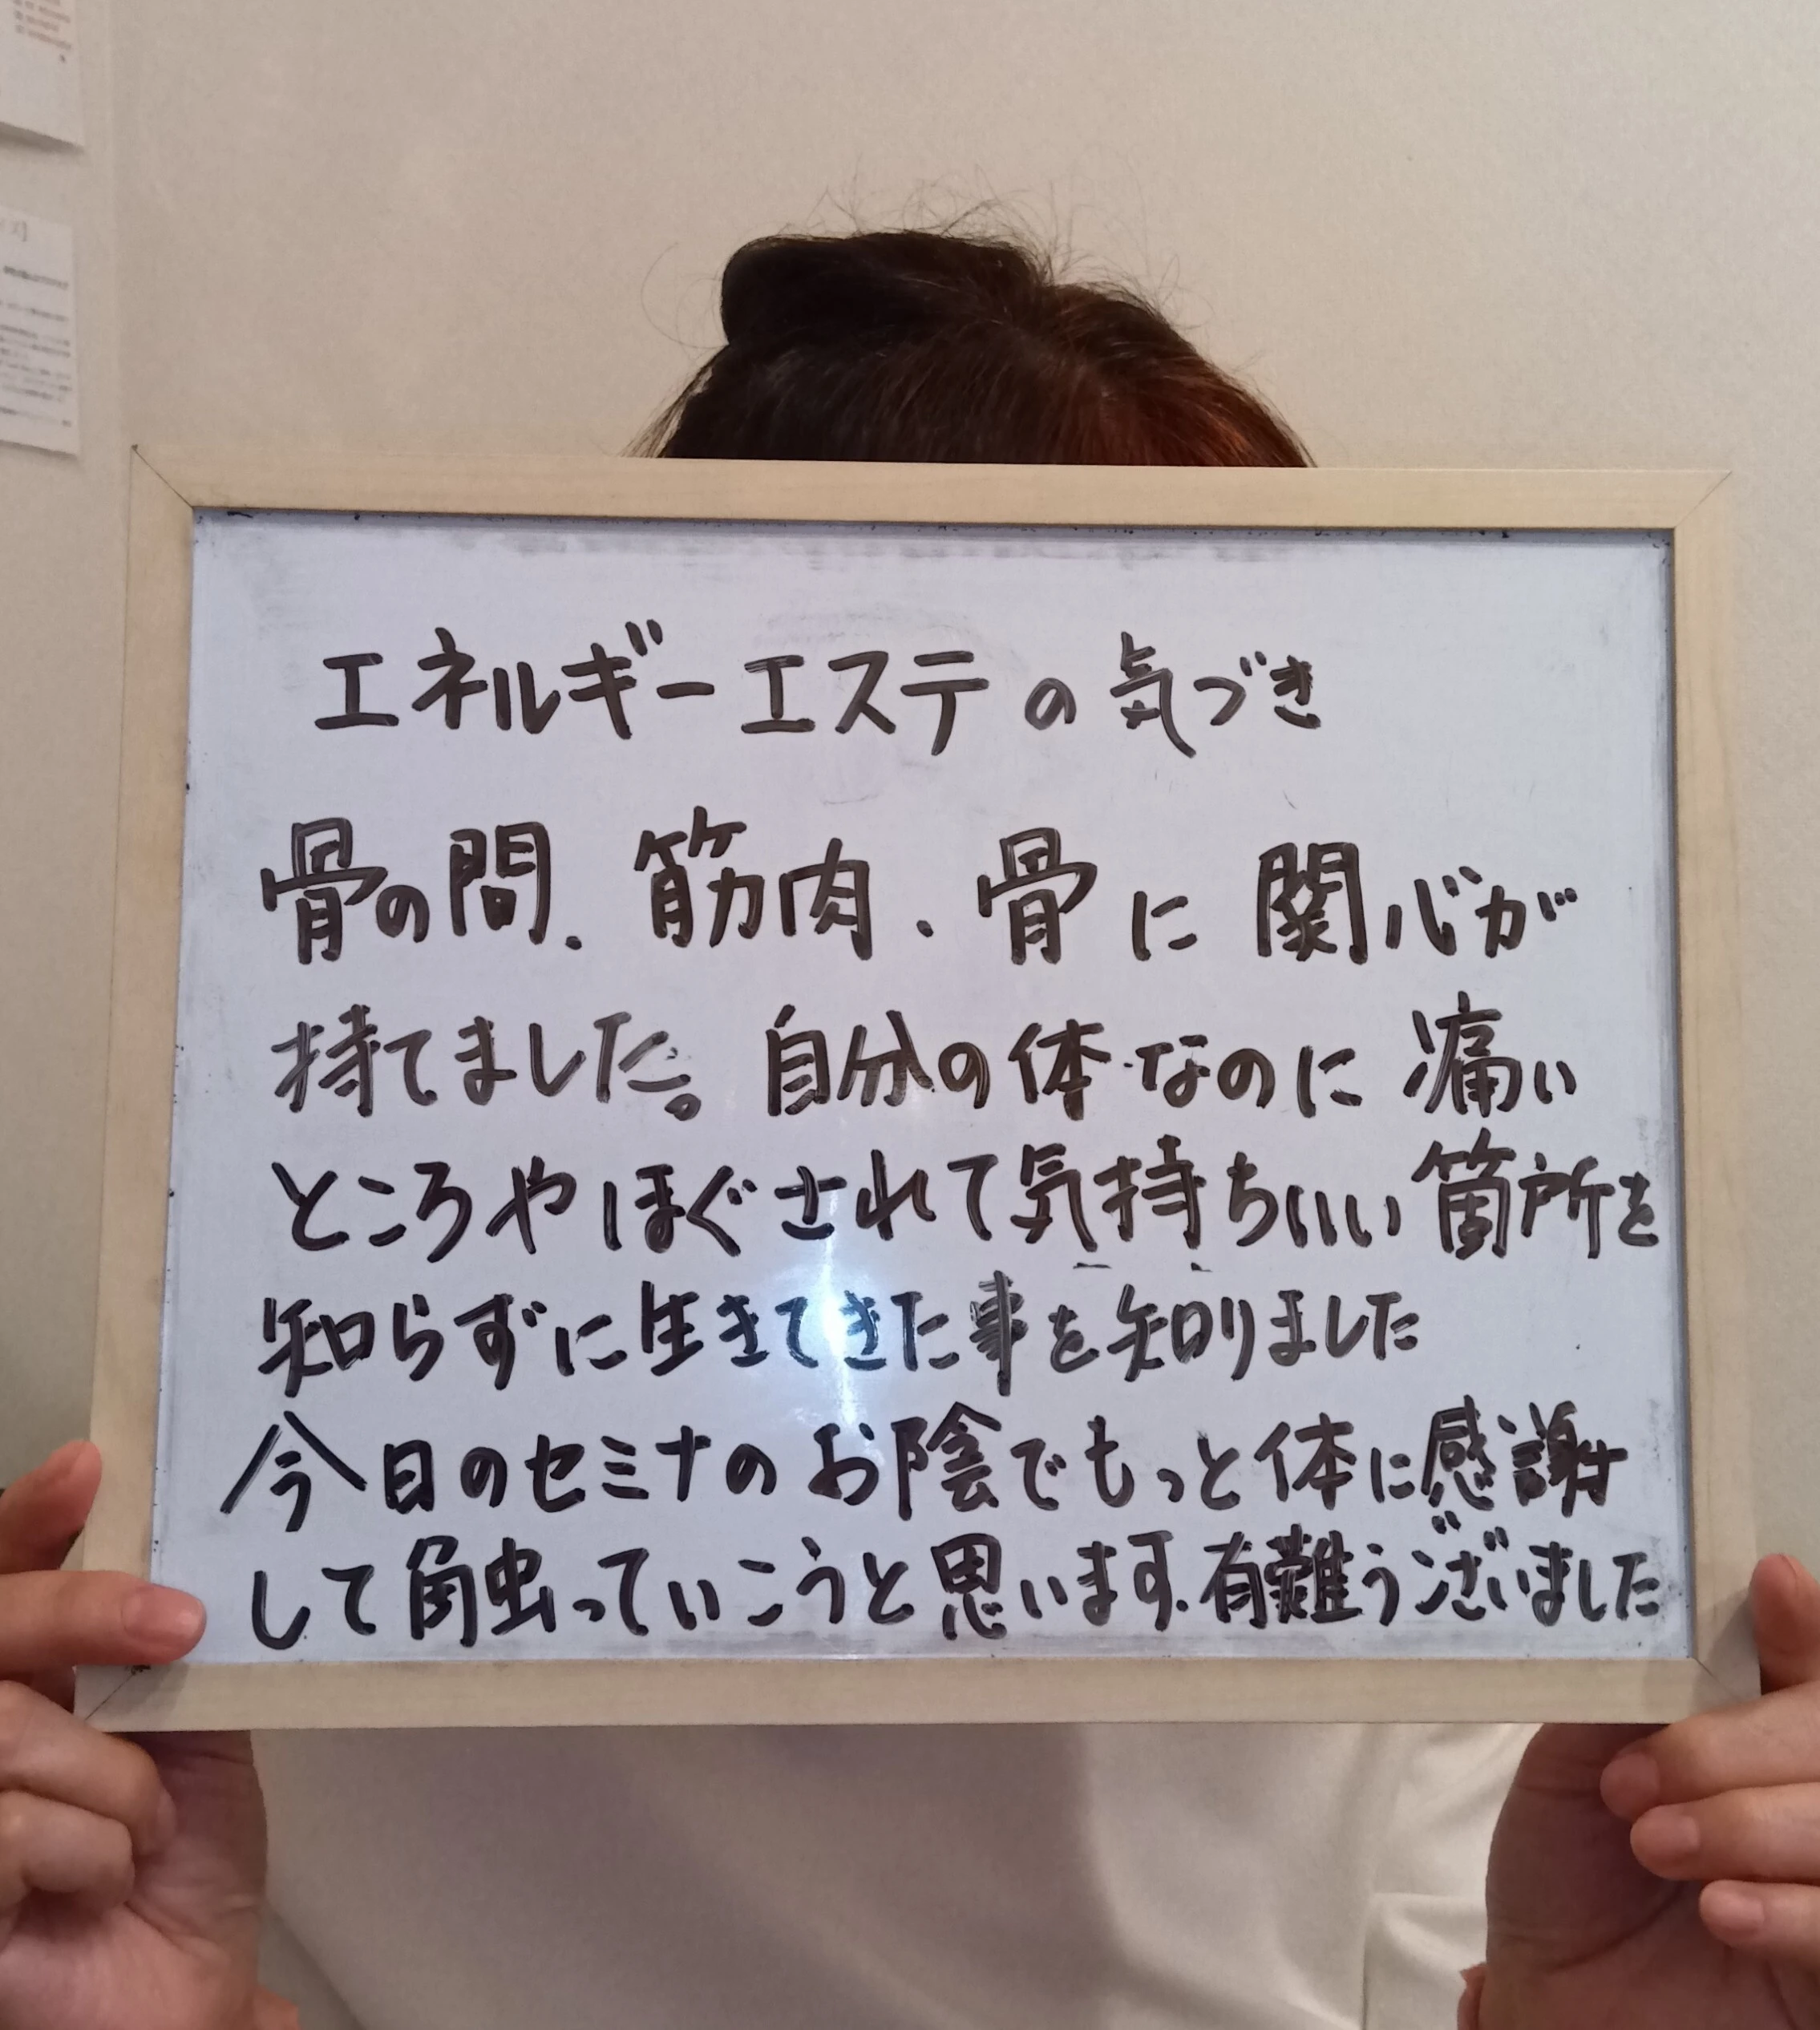 エネルギーエステの気づき
骨の間.筋肉.骨に関心が
持てました。自分の体なのに痛い
ところやほぐされて気持ちいい箇所を
知らずに生きてきた事を知りました
今日のセミナのお陰でもっと体に感謝
して触っていこうと思います.有難うございました